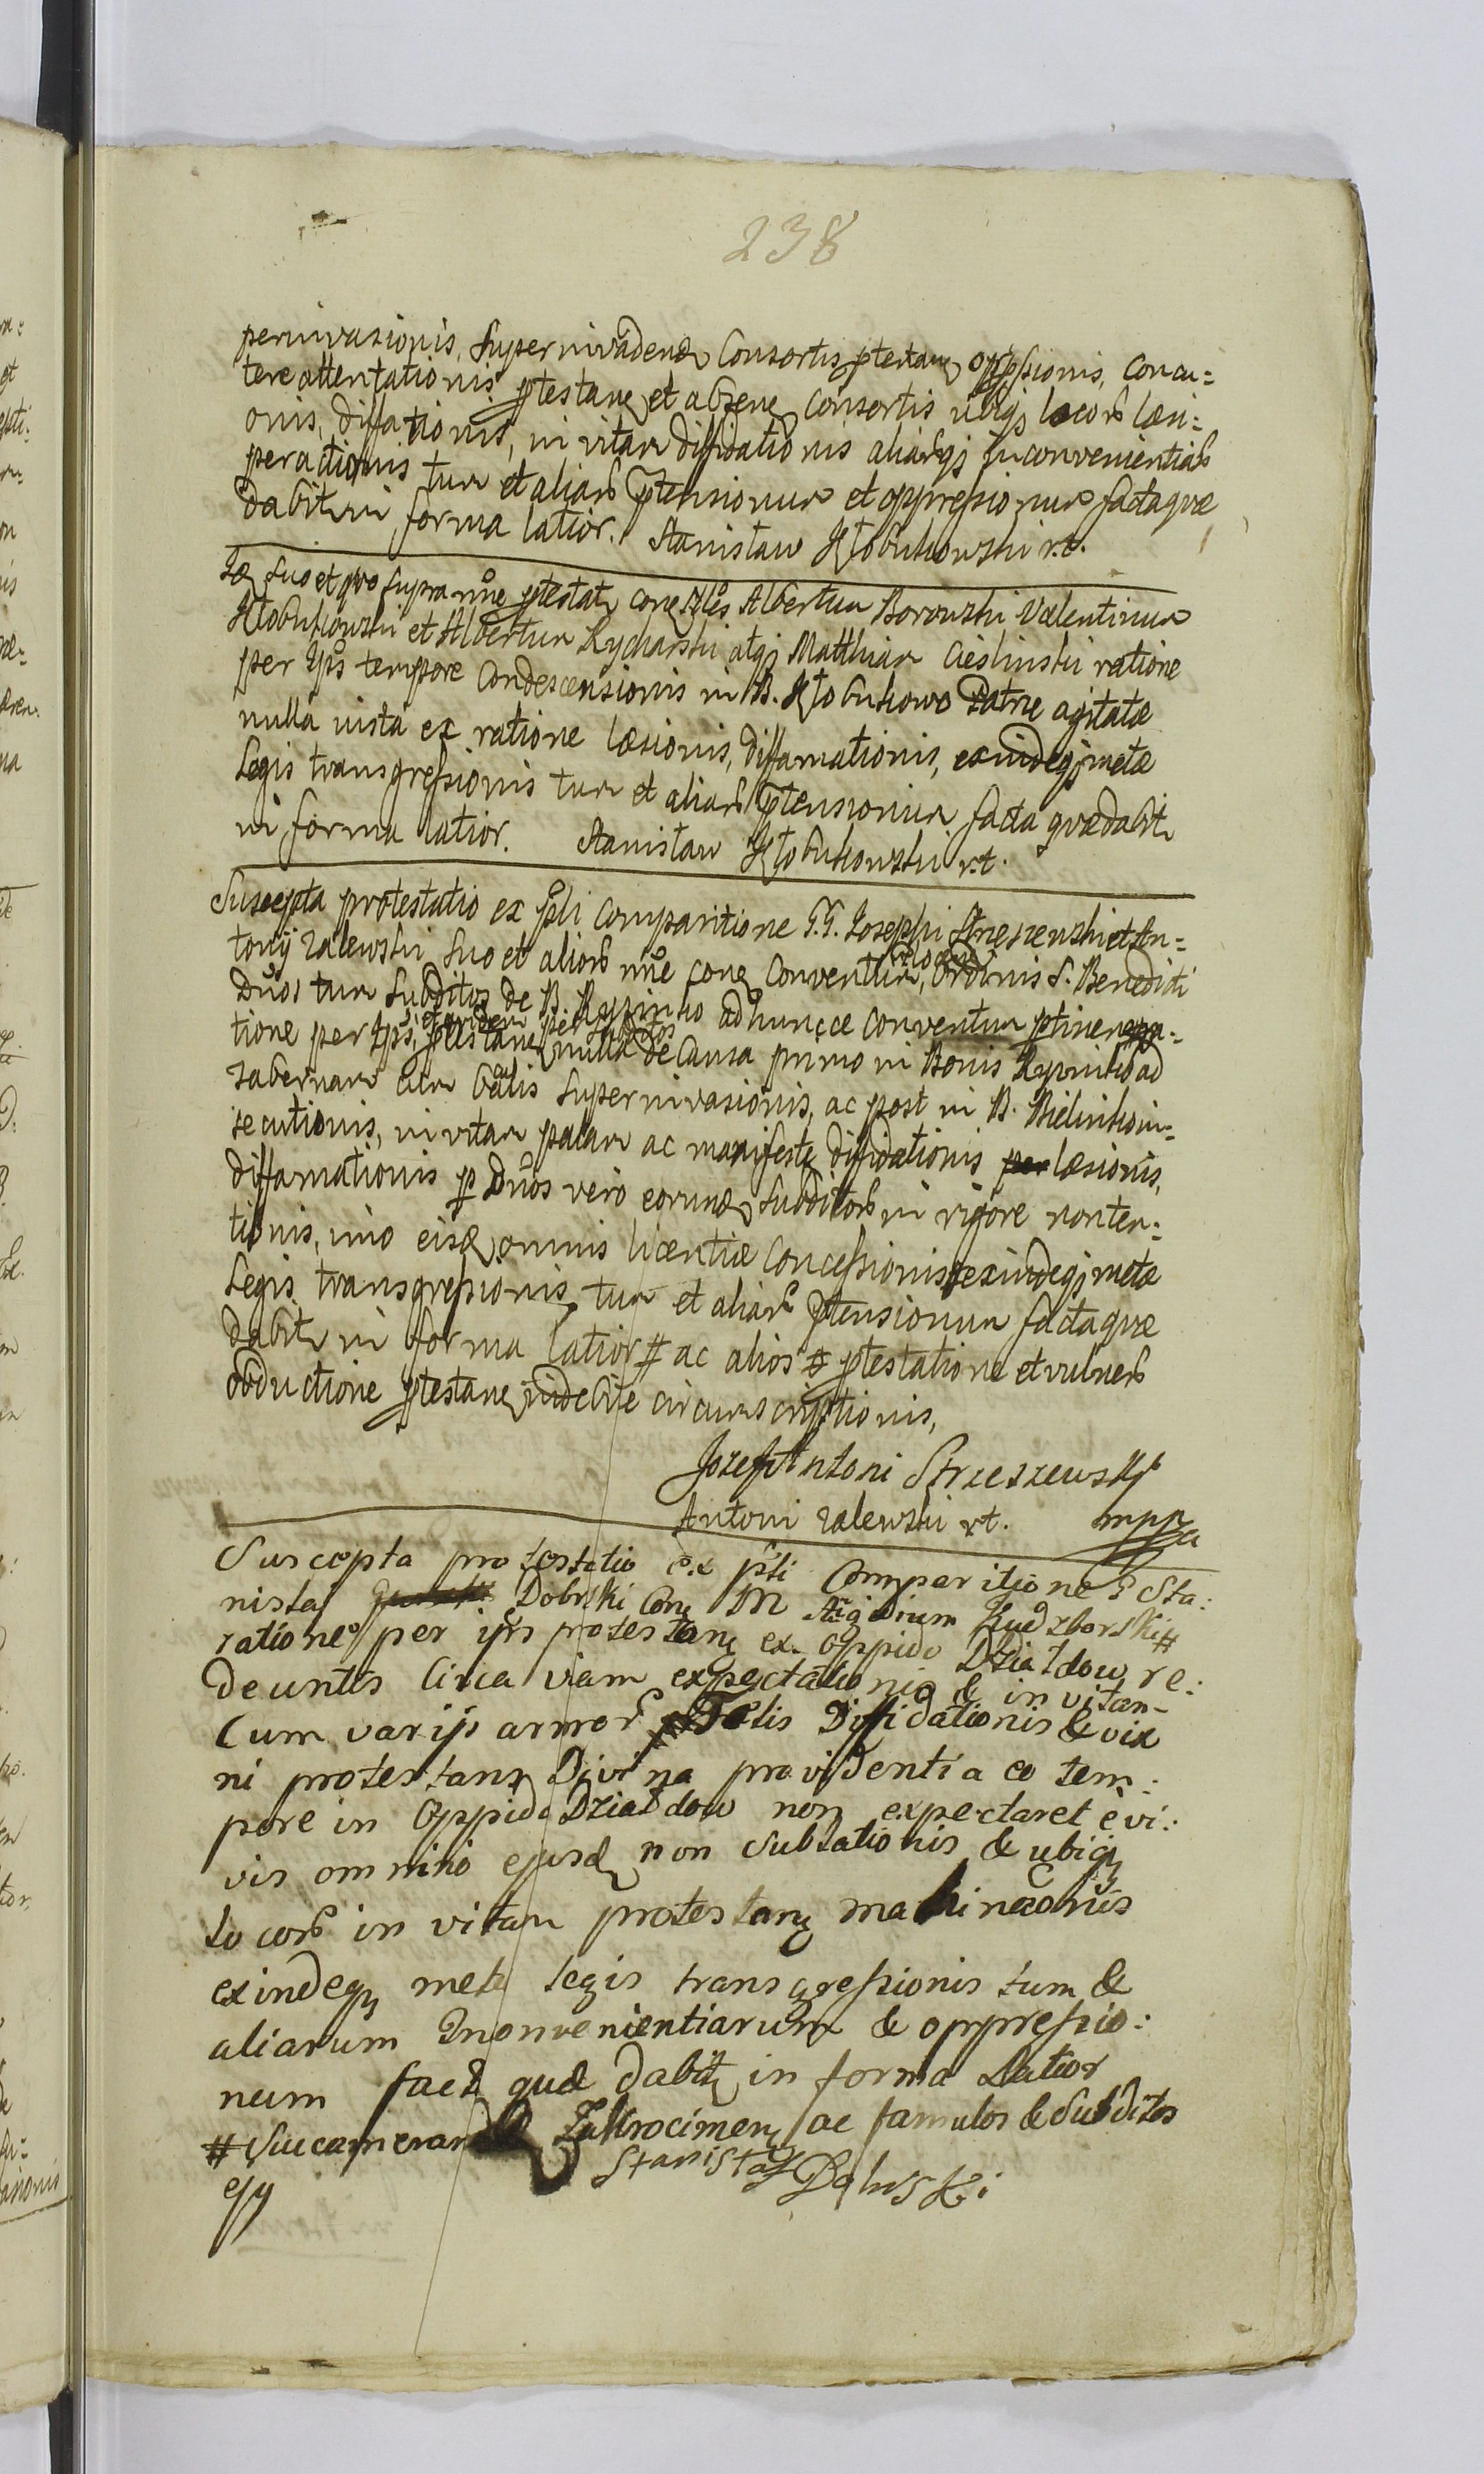 238
per invasionis, Super invadend Consortis ptestan oppssionis, concu=
tere attentationis ptestan et absen Consortis ubiqj locorb læsi=
onis, diffationis, in vitam diffidationis aliarbqj Inconvenientiarb
peractionis tum et aliarb Ptensionum et oppressionum facta quæ
dabitr in forma latior. Stanisław Kłobukowski r.t.
Id Suo et pro supra nne ptestatr con Nles Albertum Borowski Valentinum
Kłobukowski et Albertum Rycharski atqj Matthiam Cieslinski ratione
per Ipos tempore Condescensionis in B. Kłobukowo Patne agitatæ
nulla iusta ex ratione læsionis, diffamationis, exindeqj metæ
Legis transgressionis tum et aliarb Ptensionum facta quæ dabitr
in forma latior. Stanisław Kłobukowski r.t.
Suscepta protestatio ex psti Comparitione G.G. Josephi Strzeszewski et An=
tonij Zalewski Suo et aliorb nne con Conventum, Ordinis S. Benedicti
Duos tum Subditos de B. Rypinko ad huncce Conventum ptinen ra=
tione per Ipos, ptestan nulla de Causa primo in Bonis Rypinko ad
tabernam cum balis super invasionis, ac post in B. Bielinko in=
secutionis, in vitam palam ac manifeste diffidationis per læsionis,
diffamationis p Duos vero eorund Subditorb in rigore non ten=
tionis, imo eisd omnis licentiæ Concessionis exindeqj metæ
Legis transgressionis tum et aliarb Ptensionum facta quæ
dabitr in forma latior # ac alios ptestatione et vulnerb
obductione ptestan indebite circumscriptionis,
Jozeff Antoni Strzeszewski
Antoni Zalewski r.t. mpp
Suscepta protestatio ex psti Comparitione G Sta:
nislai Dobrski Con M Ægidium Kudzborski #
ratione per ips protestan ex Oppido Działdow re:
deuntis Circa viam expectationis & in vitam
Cum varijs armorb Diffidationis & via
ni protestan Divina providentia eo tem:
pore in Oppido Działdow non expectaret è vi:
vis omnino ejusd non Sublationis & ubiqj
locorb in vitam protestan machinaonis
exindeqj metæ legis transgressionis tum &
aliarum Inonvenientiarum & oppressio:
num facta quæ dabitr in forma Latior
# Succamerar Zakrocimen ac famulos & Subditos
ejy Stanisław Dobrski